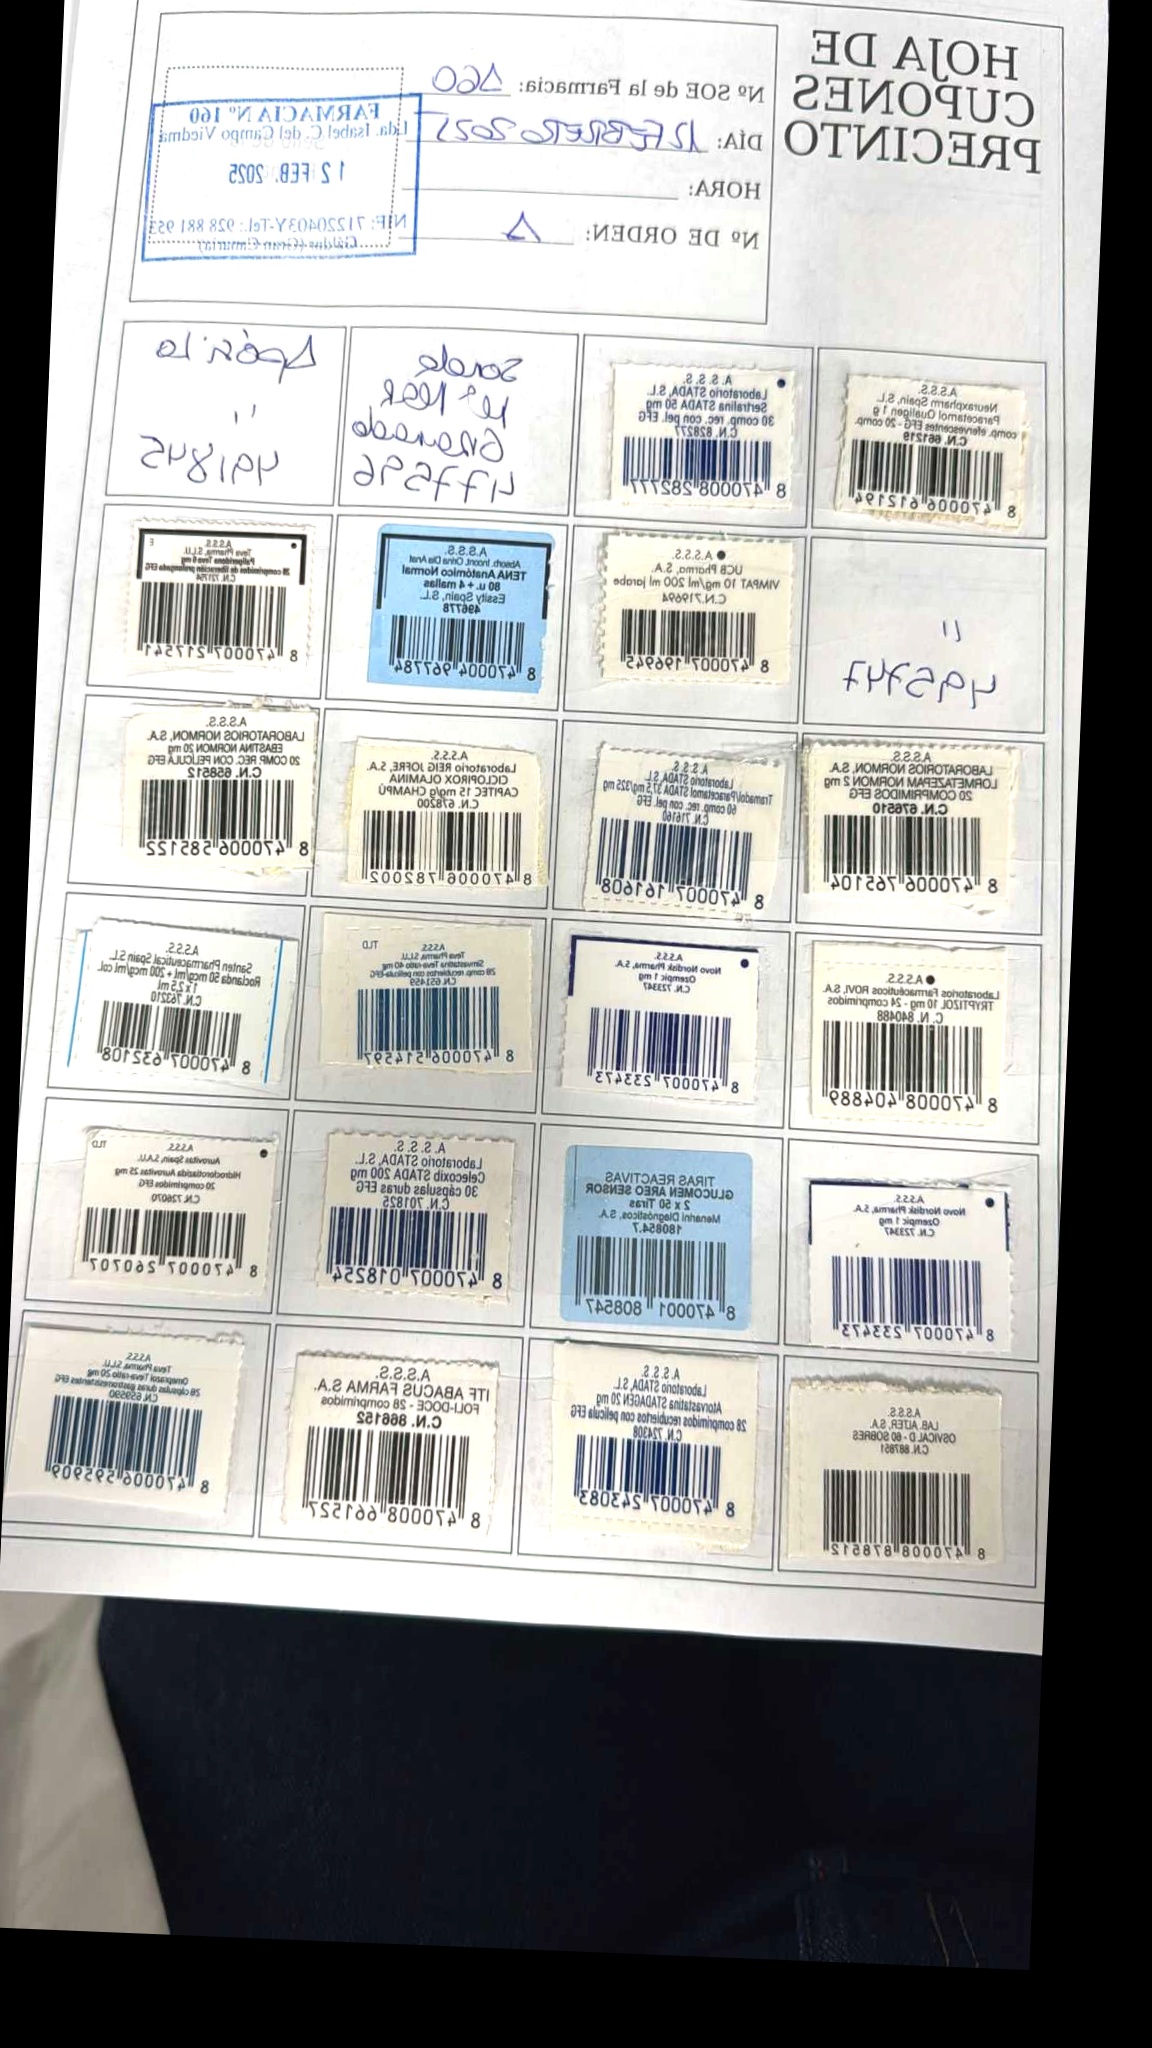 HOJA DE
CUPONES
PRECINTO
Nº SOE de la Farmacia: 160
DÍA: 12 FEBRERO 2025
HORA:
Nº DE ORDEN: 1
FARMACIA Nº 160
Lda. Isabel C. del Campo Viedma
12 FEB. 2025
NIF: 71220403Y-Tel.: 928 881 953
Gáldar (Gran Canaria)
A.S.S.S.
Neuraxpharm Spain, S.L.
Paracetamol Qualigen 1 g
comp. efervescentes EFG - 20 comp.
C.N. 661219
8 470006 612194
A.S.S.S.
Laboratorio STADA, S.L.
Sertralina STADA 50 mg
30 comp. rec. con pel. EFG
C.N. 828277
8 470008 282777
Sonda
Girando
477596
Apósito
11
491845
11
495747
A.S.S.S.
UCB Pharma, S.A.
VIMPAT 10 mg/ml 200 ml jarabe
C.N.719694
8 470007 196945
A.S.S.S.
Absorb. Incont. Orina Día Anat
TENA Anatómico Normal
80 u. + 4 mallas
Essity Spain, S.L.
496778
8 470004 967784
A.S.S.S. E
Teva Pharma, S.L.U.
Paliperidona Teva 6 mg
28 comprimidos de liberación prolongada EFG
C.N. 721754
8 470007 217541
A.S.S.S.
LABORATORIOS NORMON, S.A.
LORMETAZEPAM NORMON 2 mg
20 COMPRIMIDOS EFG
C.N. 676510
8 470006 765104
A.S.S.S.
Laboratorio STADA, S.L.
Tramadol/Paracetamol STADA 37,5 mg/325 mg
60 comp. rec. con pel. EFG
C.N. 716160
8 470007 161608
A.S.S.S.
Laboratorio REIG JOFRE, S.A.
CICLOPIROX OLAMINA
CAPITEC 15 mg/g CHAMPÚ
C.N. 678200
8 470006 782002
A.S.S.S.
LABORATORIOS NORMON, S.A.
EBASTINA NORMON 20 mg
20 COMP REC. CON PELÍCULA EFG
C.N. 658512
8 470006 585122
A.S.S.S.
Laboratorios Farmacéuticos ROVI, S.A.
TRYPTIZOL 10 mg - 24 comprimidos
C. N. 840488
8 470008 404889
A.S.S.S.
Novo Nordisk Pharma, S.A.
Ozempic 1 mg
C.N. 723347
8 470007 233473
A.S.S.S. TLD
Teva Pharma, S.L.U.
Simvastatina Teva-ratio 40 mg
28 comp. recubiertos con película EFG
C.N. 651459
8 470006 514597
A.S.S.S.
Santen Pharmaceutical Spain S.L.
Roclanda 50 mcg/ml + 200 mcg/ml col.
1 x 2,5 ml
C.N. 763210
8 470007 632108
A.S.S.S.
Novo Nordisk Pharma, S.A.
Ozempic 1 mg
C.N. 723347
8 470007 233473
TIRAS REACTIVAS
GLUCOMEN AREO SENSOR
2 x 50 Tiras
Menarini Diagnósticos, S.A.
180854.7
8 470001 808547
A.S.S.S.
Laboratorio STADA, S.L.
Celecoxib STADA 200 mg
30 cápsulas duras EFG
C.N. 701825
8 470007 018254
A.S.S.S. TLD
Aurovitas Spain, S.A.U.
Hidroclorotiazida Aurovitas 25 mg
20 comprimidos EFG
C.N. 726070
8 470007 260707
A.S.S.S.
LAB. ALTER, S.A.
OSVICAL D - 60 SOBRES
C.N. 887851
8 470008 878512
A.S.S.S.
Laboratorio STADA, S.L.
Atorvastatina STADAGEN 20 mg
28 comprimidos recubiertos con película EFG
C.N. 724308
8 470007 243083
A.S.S.S.
ITF ABACUS FARMA S.A.
FOLI-DOCE - 28 comprimidos
C.N. 866152
8 470008 661527
A.S.S.S.
Teva Pharma, S.L.U.
Omeprazol Teva-ratio 20 mg
28 cápsulas duras gastrorresistentes EFG
C.N. 659590
8 470006 595909